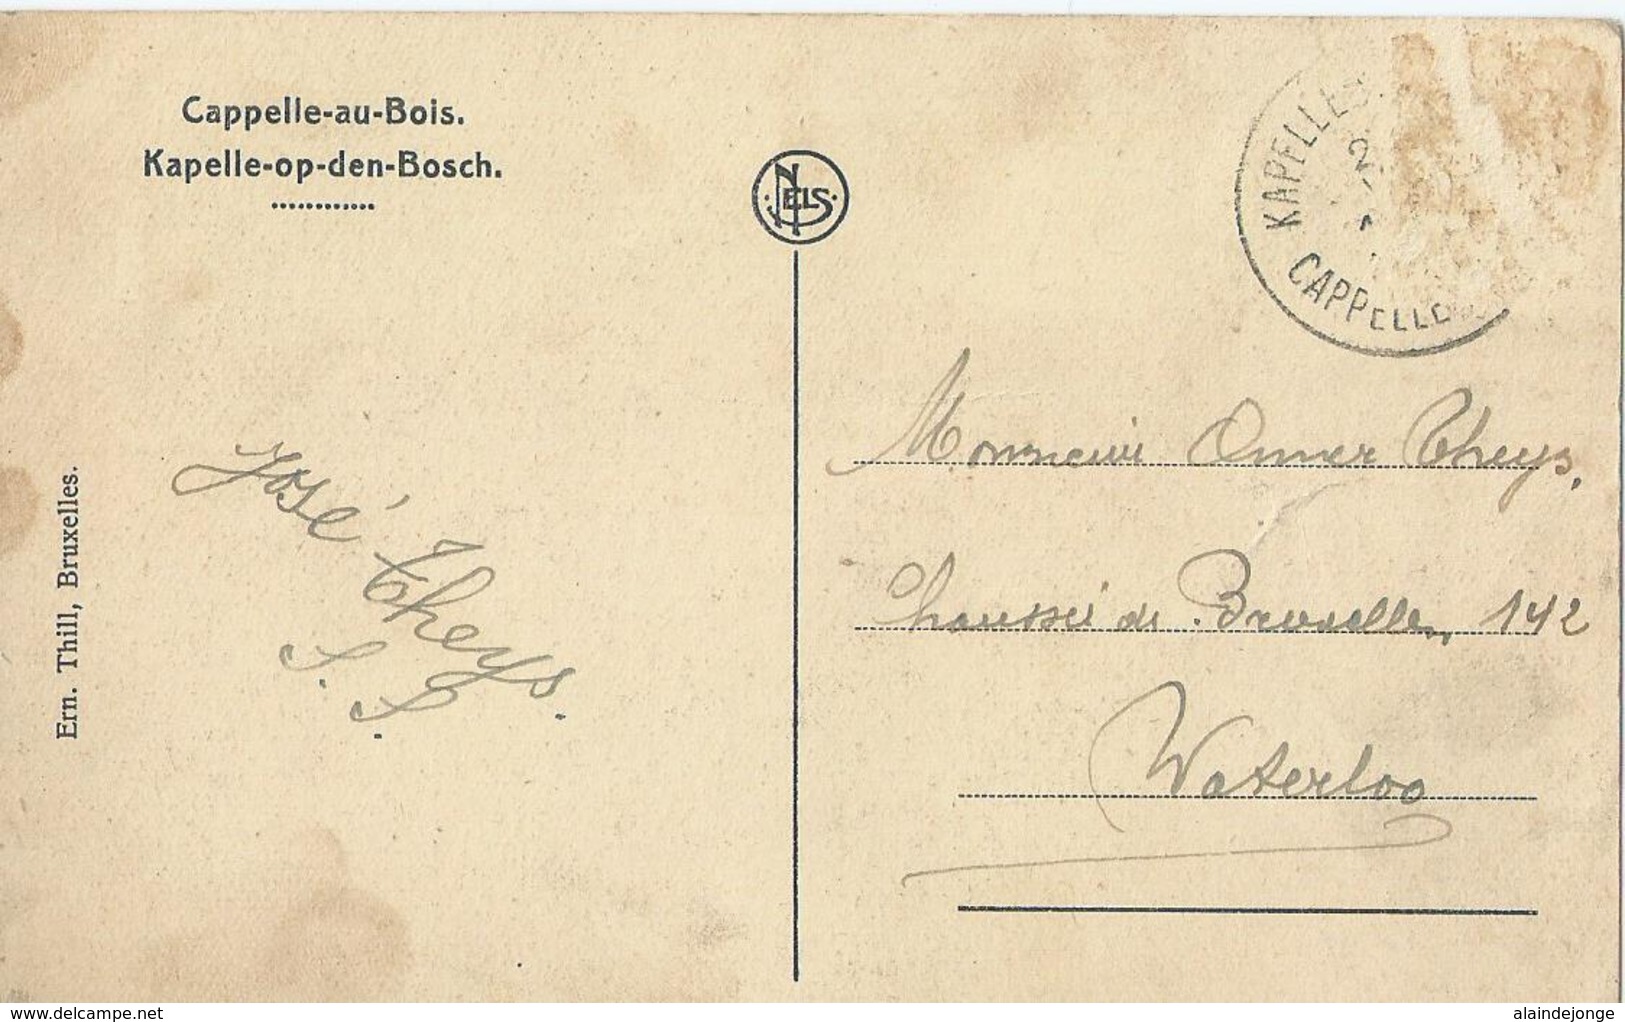 Cappelle-au-Bois.
Kapelle-op-den-Bosch.
NELS
KAPELLE
CAPPELLE
Monsieur Omer Theys.
Chaussée de Bruxelles, 142
Waterloo
José Theys.
S. S.
Ern. Thill, Bruxelles.
www.delcampe.net
alaindejonge